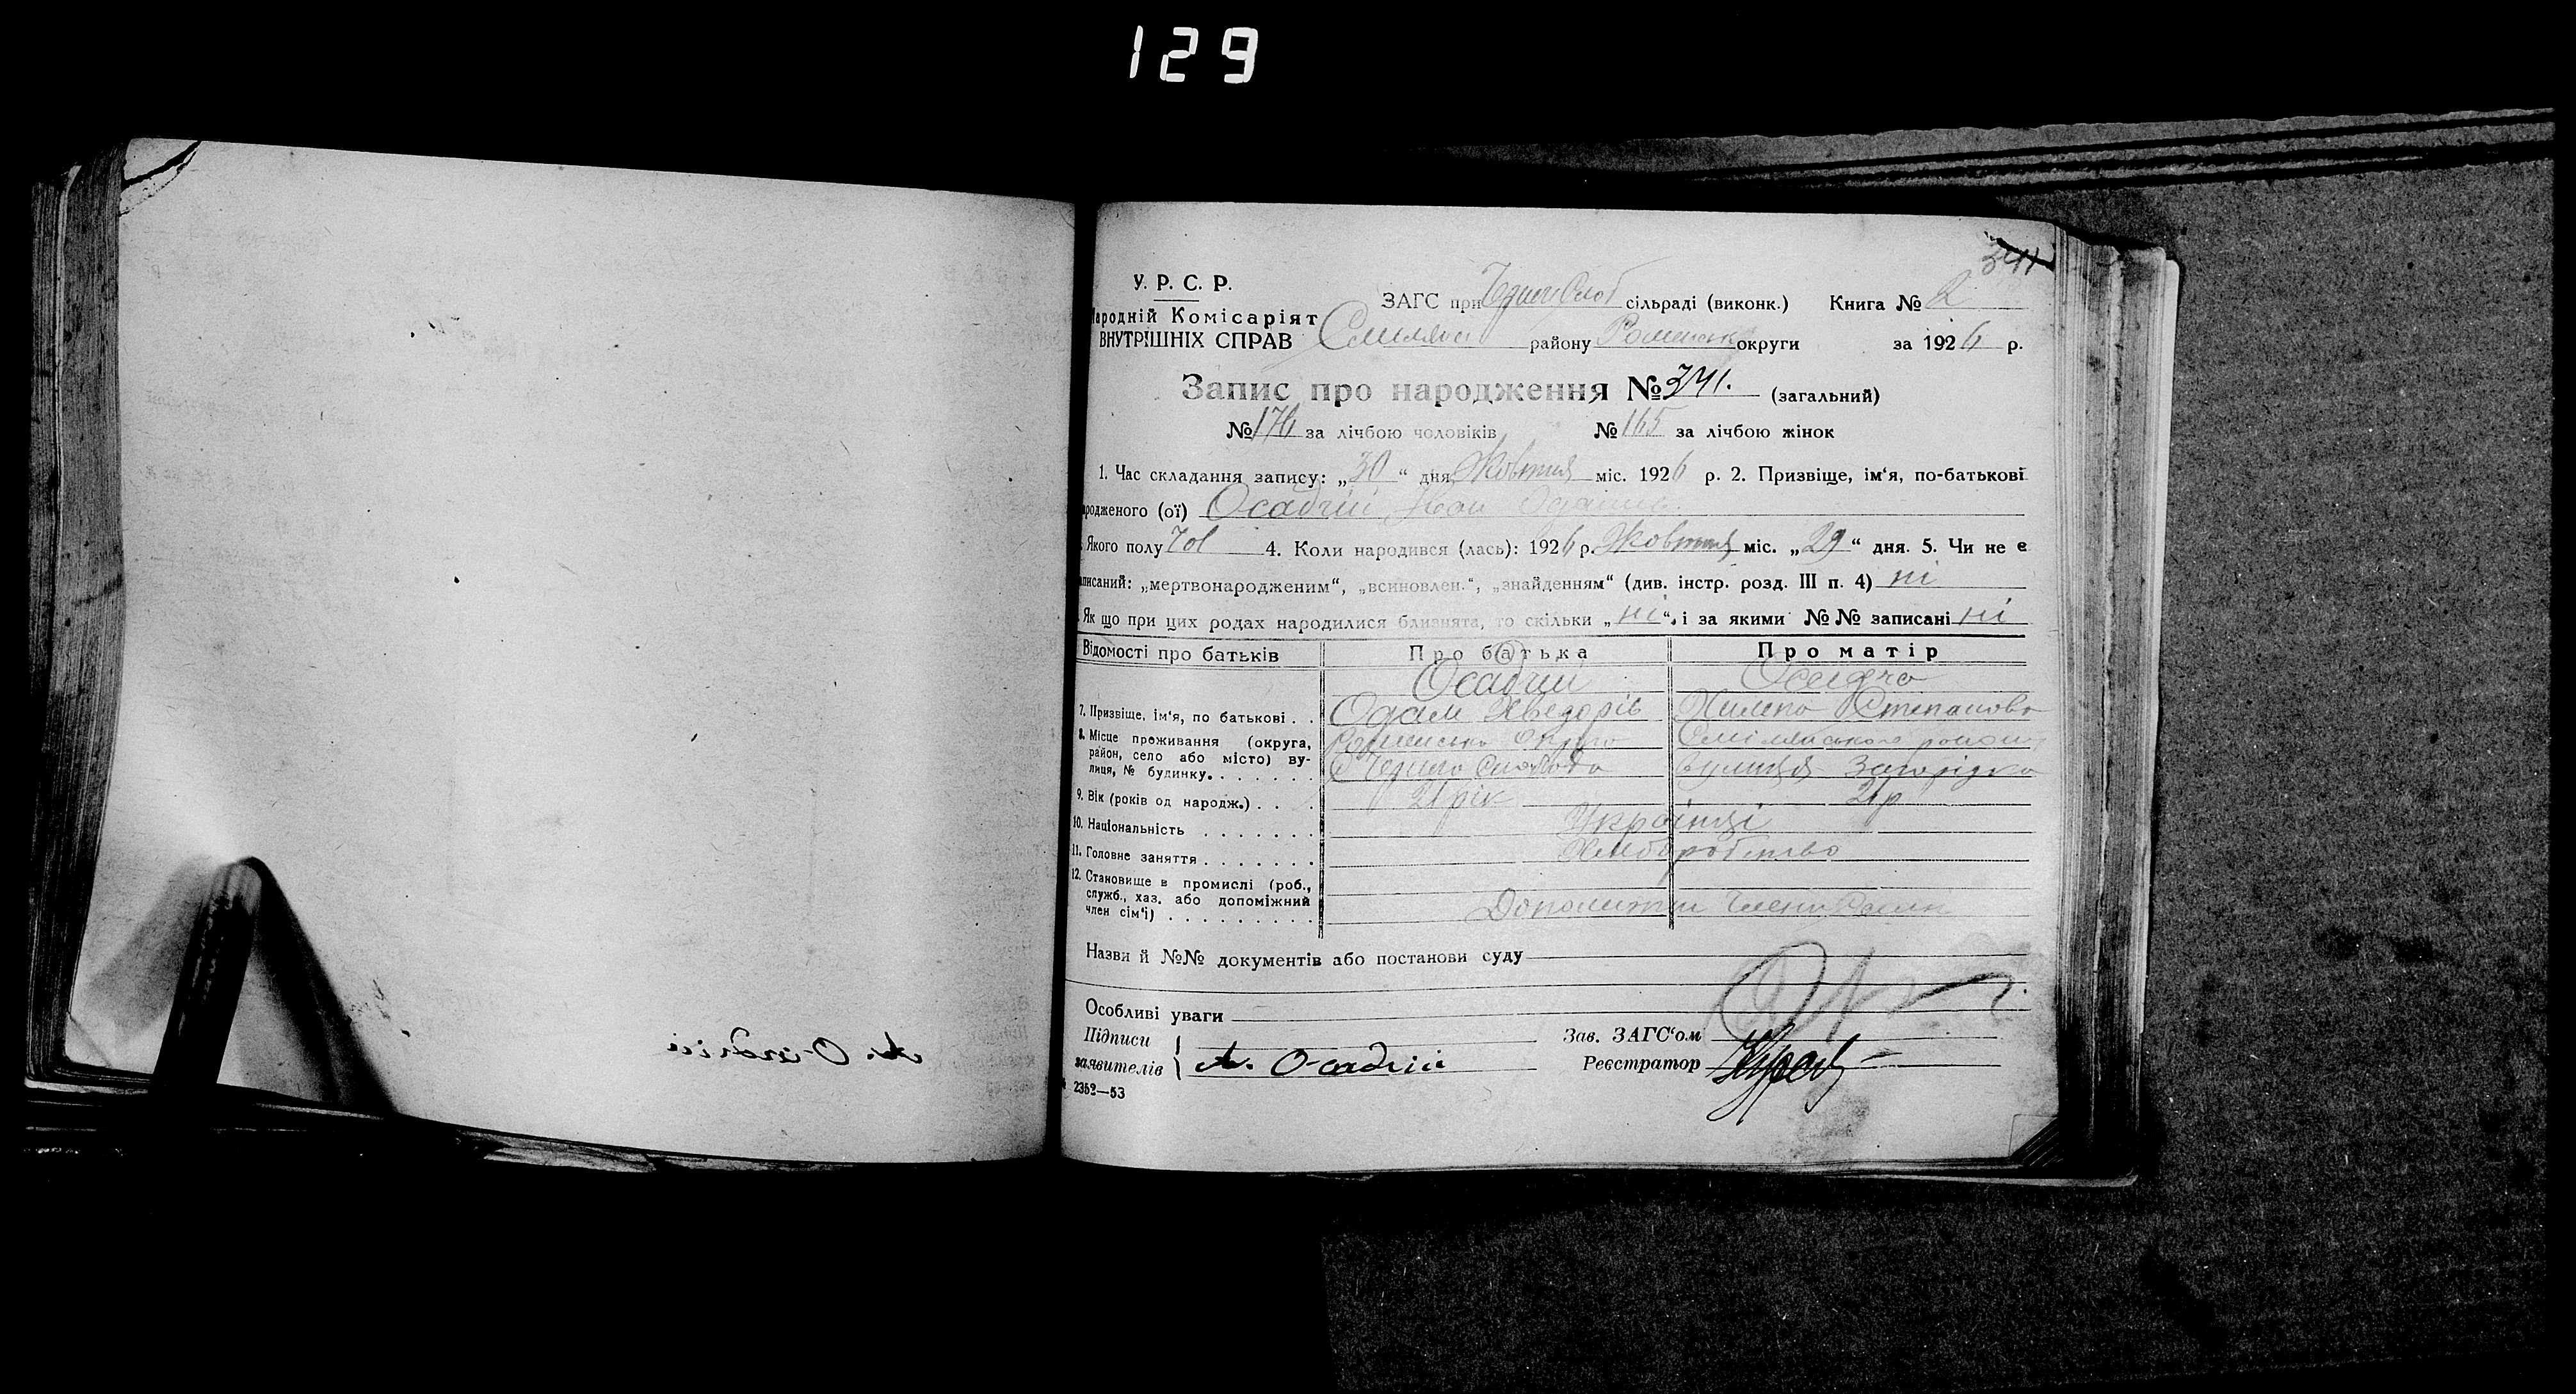 129
341
У. Р. С. Р.
Народній Комісаріят
ВНУТРІШНІХ СПРАВ
ЗАГС при сільраді (виконк.) Книга № 2
району Роменськ округи за 1926 р.
Запис про народження № 341. (загальний)
№ 176 за лічбою чоловіків № 165 за лічбою жінок
1. Час складання запису: „30“ дня Жовтня міс. 1926 р. 2. Призвіще, ім‘я, по-батькові
родженого (ої) Осадчий Іван
Якого полу Чол 4. Коли народився (лась): 1926 р. Жовтня міс. „29“ дня. 5. Чи не є
записаний: „мертвонародженим“, „всиновлен.“, „знайденням“ (див. інстр. розд. III п. 4) ні
Як що при цих родах народилися близнята, то скільки „ні“, і за якими №№ записані ні
Відомості про батьків Про батька Про матір
Осадчий Осадча
7. Призвіще, ім‘я, по батькові . . Одам Хведорів Степанова
8. Місце проживання (округа,
район, село або місто) ву-
лиця, № будинку. . . . . . .
Роменська округа Смілянського району
вулиця Загорідка
9. Вік (років од народж.) . . . 21 рік 21 р
10. Національність . . . . . . . Українці
11. Головне заняття . . . . . . . Хліборобство
12. Становище в промислі (роб.,
служб., хаз. або допоміжний
член сім‘ї) . . . . . . . . .
Назви й №№ документів або постанови суду
Особливі уваги
Підписи
заявителів А. Осадчий
Зав. ЗАГС‘ом
Реєстратор
2352—53